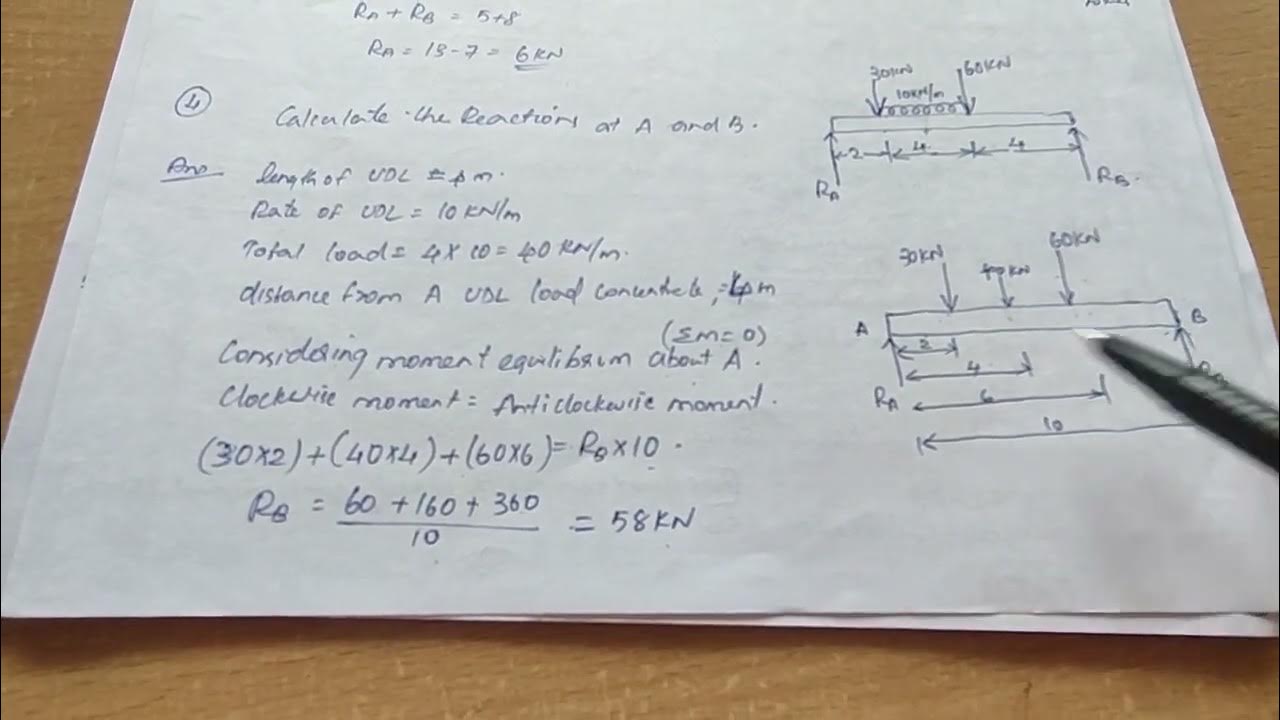 RA + RB = 5+8
RA = 13-7 = 6KN
4
Calculate the Reactions at A and B.
30KN
60KN
10KN/m
2
4
4
RA
RB.
Ans
length of UDL = 4 m.
Rate of UDL = 10 KN/m
Total load = 4 x 10 = 40 KN/m.
distance from A UDL load concentrate, = 4 m
(Σm=0)
Considering moment equilibrium about A.
Clockwise moment = Anticlockwise moment.
(30x2)+(40x4)+(60x6)= RBx10.
RB = 60 + 160 + 360
10
= 58KN
30KN
40KN
60KN
A
B
2
4
6
10
RA